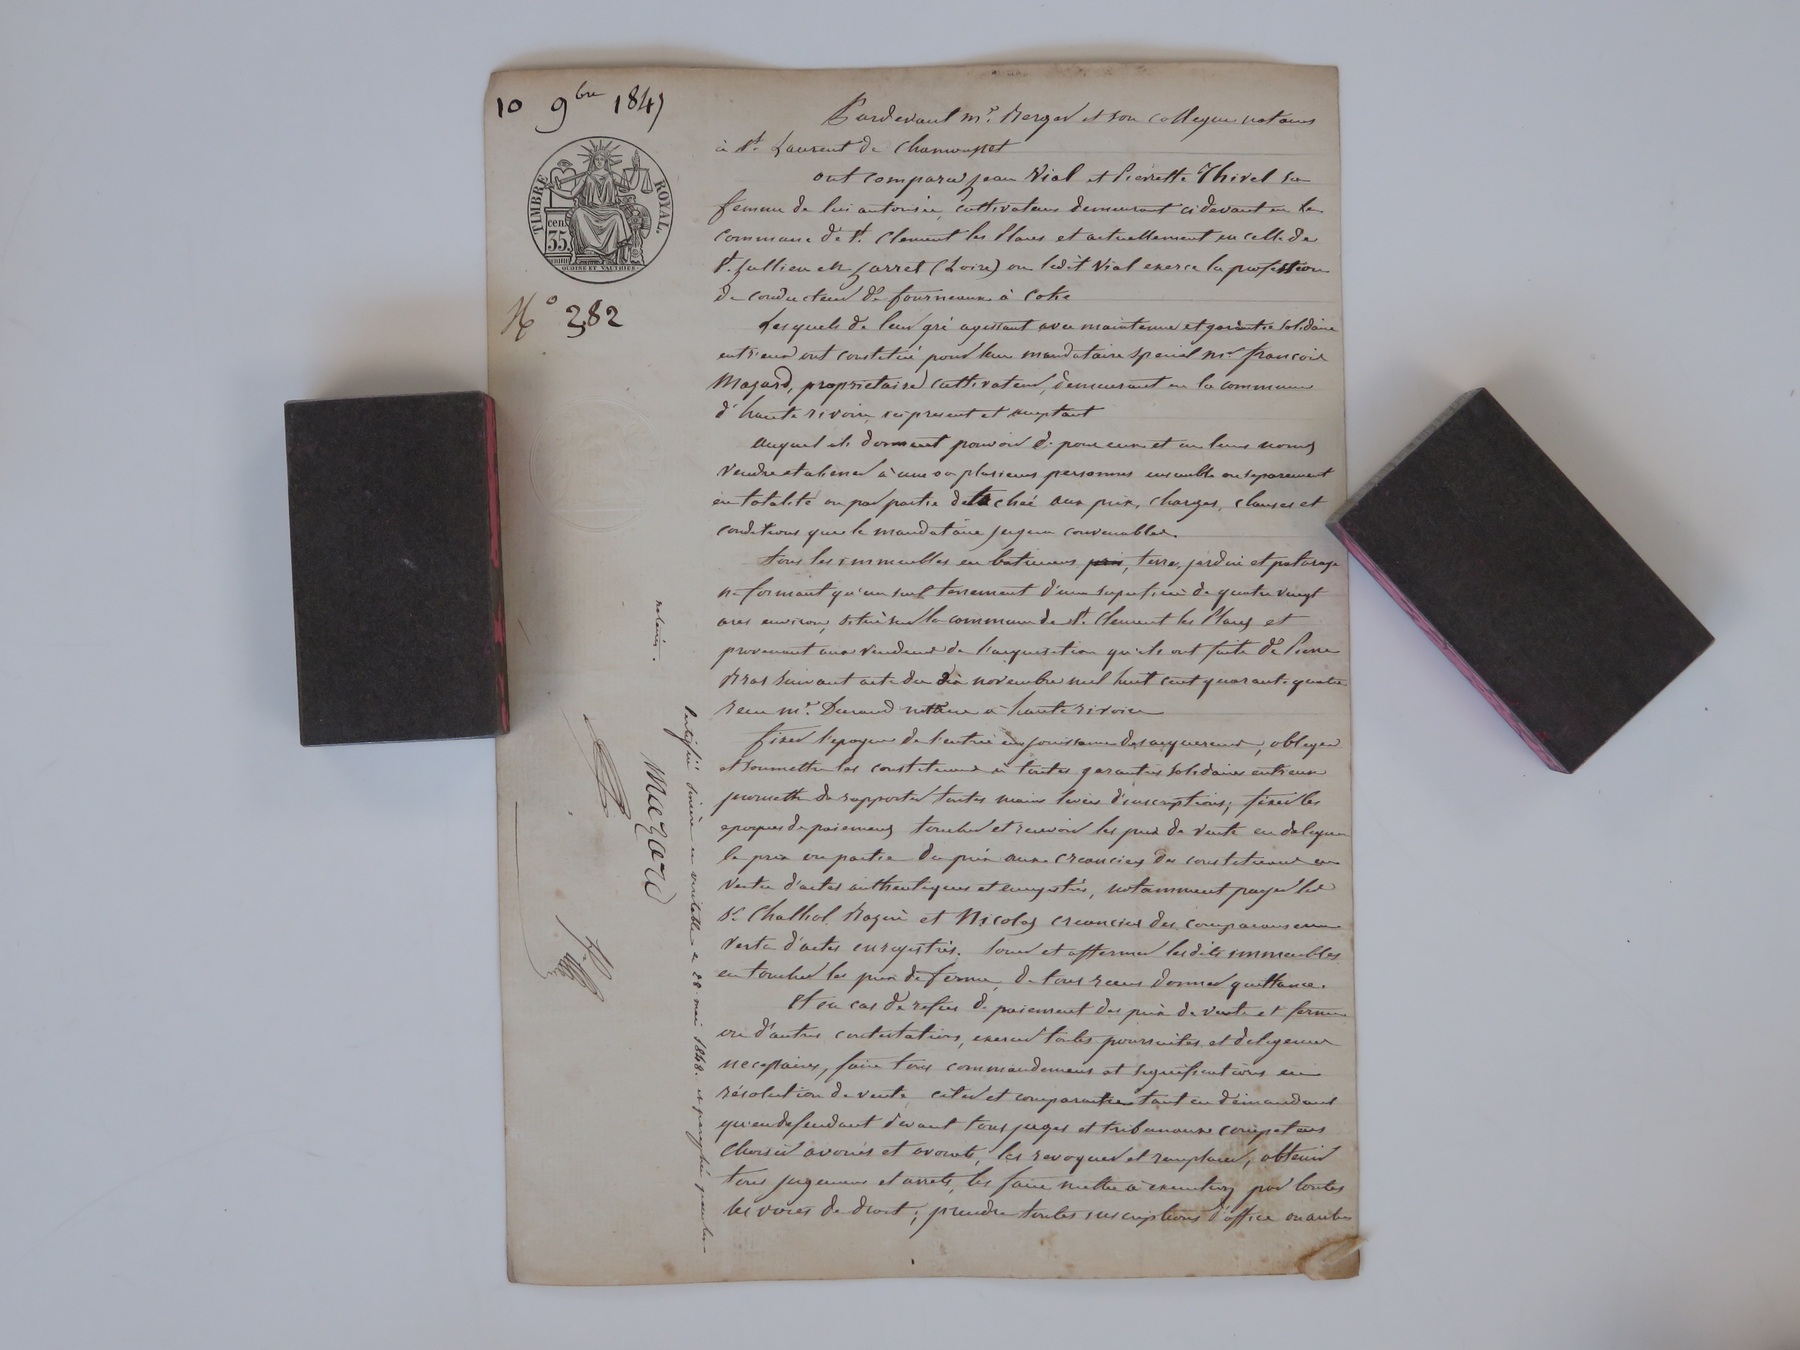 10 9bre 1847
TIMBRE ROYAL.
cen. 35
N° 382
Pardevant Me. Berger et son collegue notaires
à St. Laurent de Chamousset
ont comparu jean Vial et Pierrette Thivel sa
femme de lui autorisée, cultivateurs demeurant cidevant en la
commune de St. Clement les Places et actuellement en celle de
St. Jullien en Jarret (Loire) ou ledit Vial exerce la profession
de conducteur de fourneaux à coke
Lesquels de leur gré agissant avec maintenue et garantie solidaire
entr'eux ont constitué pour leur mandataire special Mr. françois
Mazard, propriétaire cultivateur, demeurant en la commune
d'haute rivoire, ici present et acceptant
auquel ils donnent pouvoir de pour eux et en leurs noms
vendre et aliener à une ou plusieurs personnes ensemble ou séparement
en totalité ou par partie detachée aux prix, charges, clauses et
conditions que le mandataire jugera convenables.
tous les immeubles en batiments, terre, jardin et paturage
ne formant qu'un seul tenement d'une superficie de quatre vingt
ares environ, situé sur la commune de St. Clement les Places et
provenant aux vendeurs de l'acquisition qu'ils ont faite de Pierre
Bras suivant acte du dix novembre mil huit cent quarante quatre
recu Me. Durand notaire à haute rivoire
fixer l'epoque de l'entrée en jouissance des acquereurs, obliger
et soumettre les constituans à toutes garanties solidaires entr'eux
promettre de rapporter toutes mains levées d'inscriptions; fixer les
epoques de paiement, toucher et recevoir les prix de vente ou deleguer
le prix ou partie du prix aux creanciers des constituans en
vertu d'actes authentiques et enregistrés, notamment payer les
Sr. Challiol et Nicolas creanciers des comparans en
vertu d'actes enregistrés. louer et affermer lesdits immeubles
en toucher les prix de ferme, de tous recus donner quittance.
Et en cas de refus de paiement des prix de vente et ferme
ou d'autres contestations, exercer toutes poursuites et deligences
necessaires, faire tous commandemens et significations en
résolution de vente, citer et comparaitre tant en demandant
qu'en defendant devant tous juges et tribunaux competens
choisir avoués et avocats, les revoquer et remplacer, obtenir
tous jugemens et arrets, les faire mettre à execution par toutes
les voies de droit; prendre toutes inscriptions d'office ou autres
certifié sincère et veritable le 28 mai 1848. et paraphé par les
notaires.
Mazard